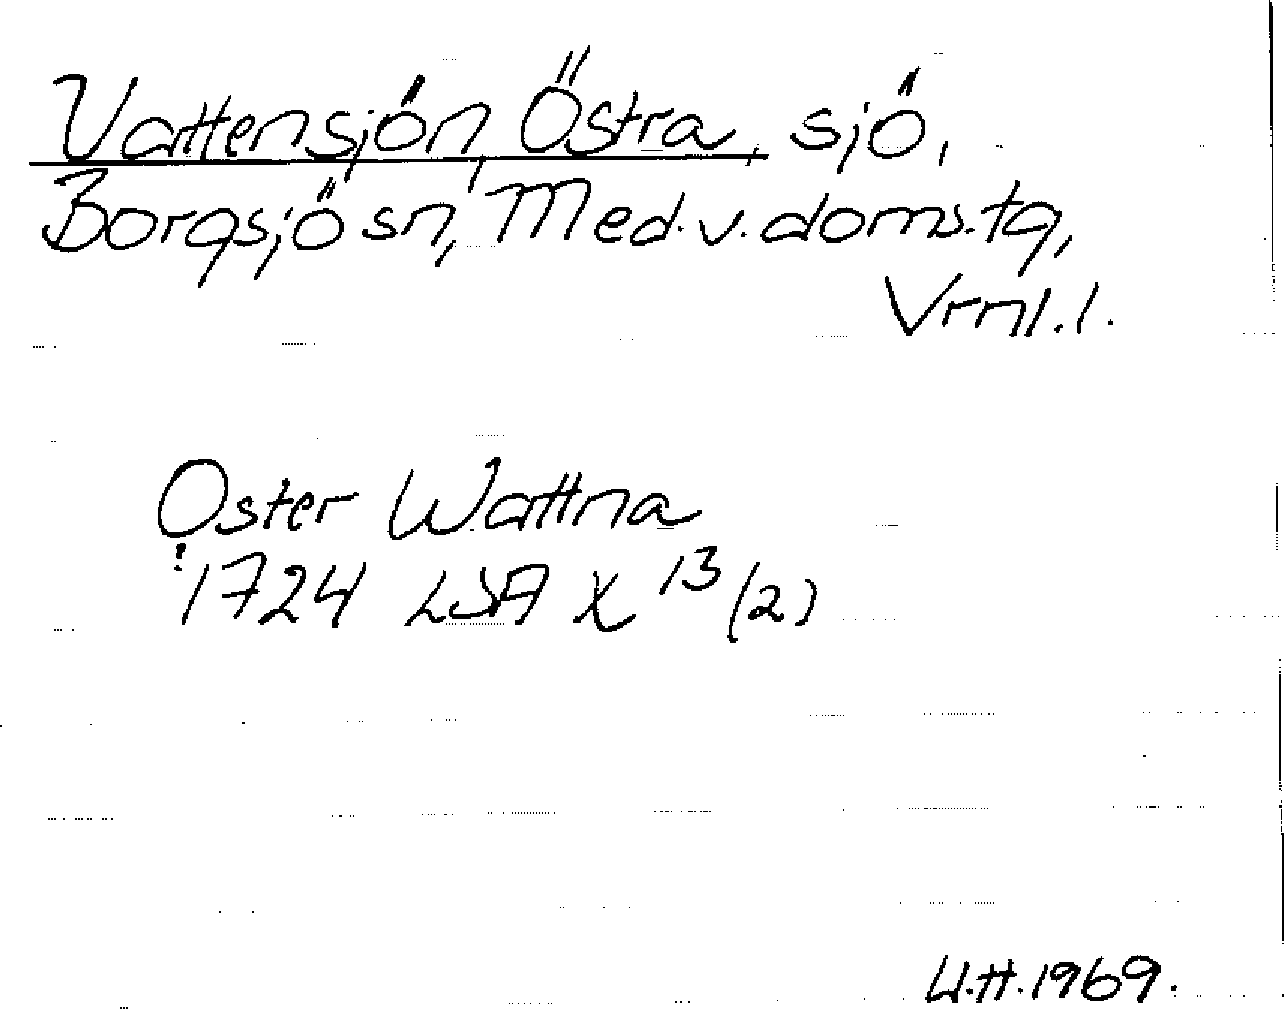 Vattensjön, Östra, sjö,
Borgsjö sn, Med. v. doms. tg,
Vrnl. l.
Oster Wattna
!
1724 LSA X 13 (2)
U.H. 1969.